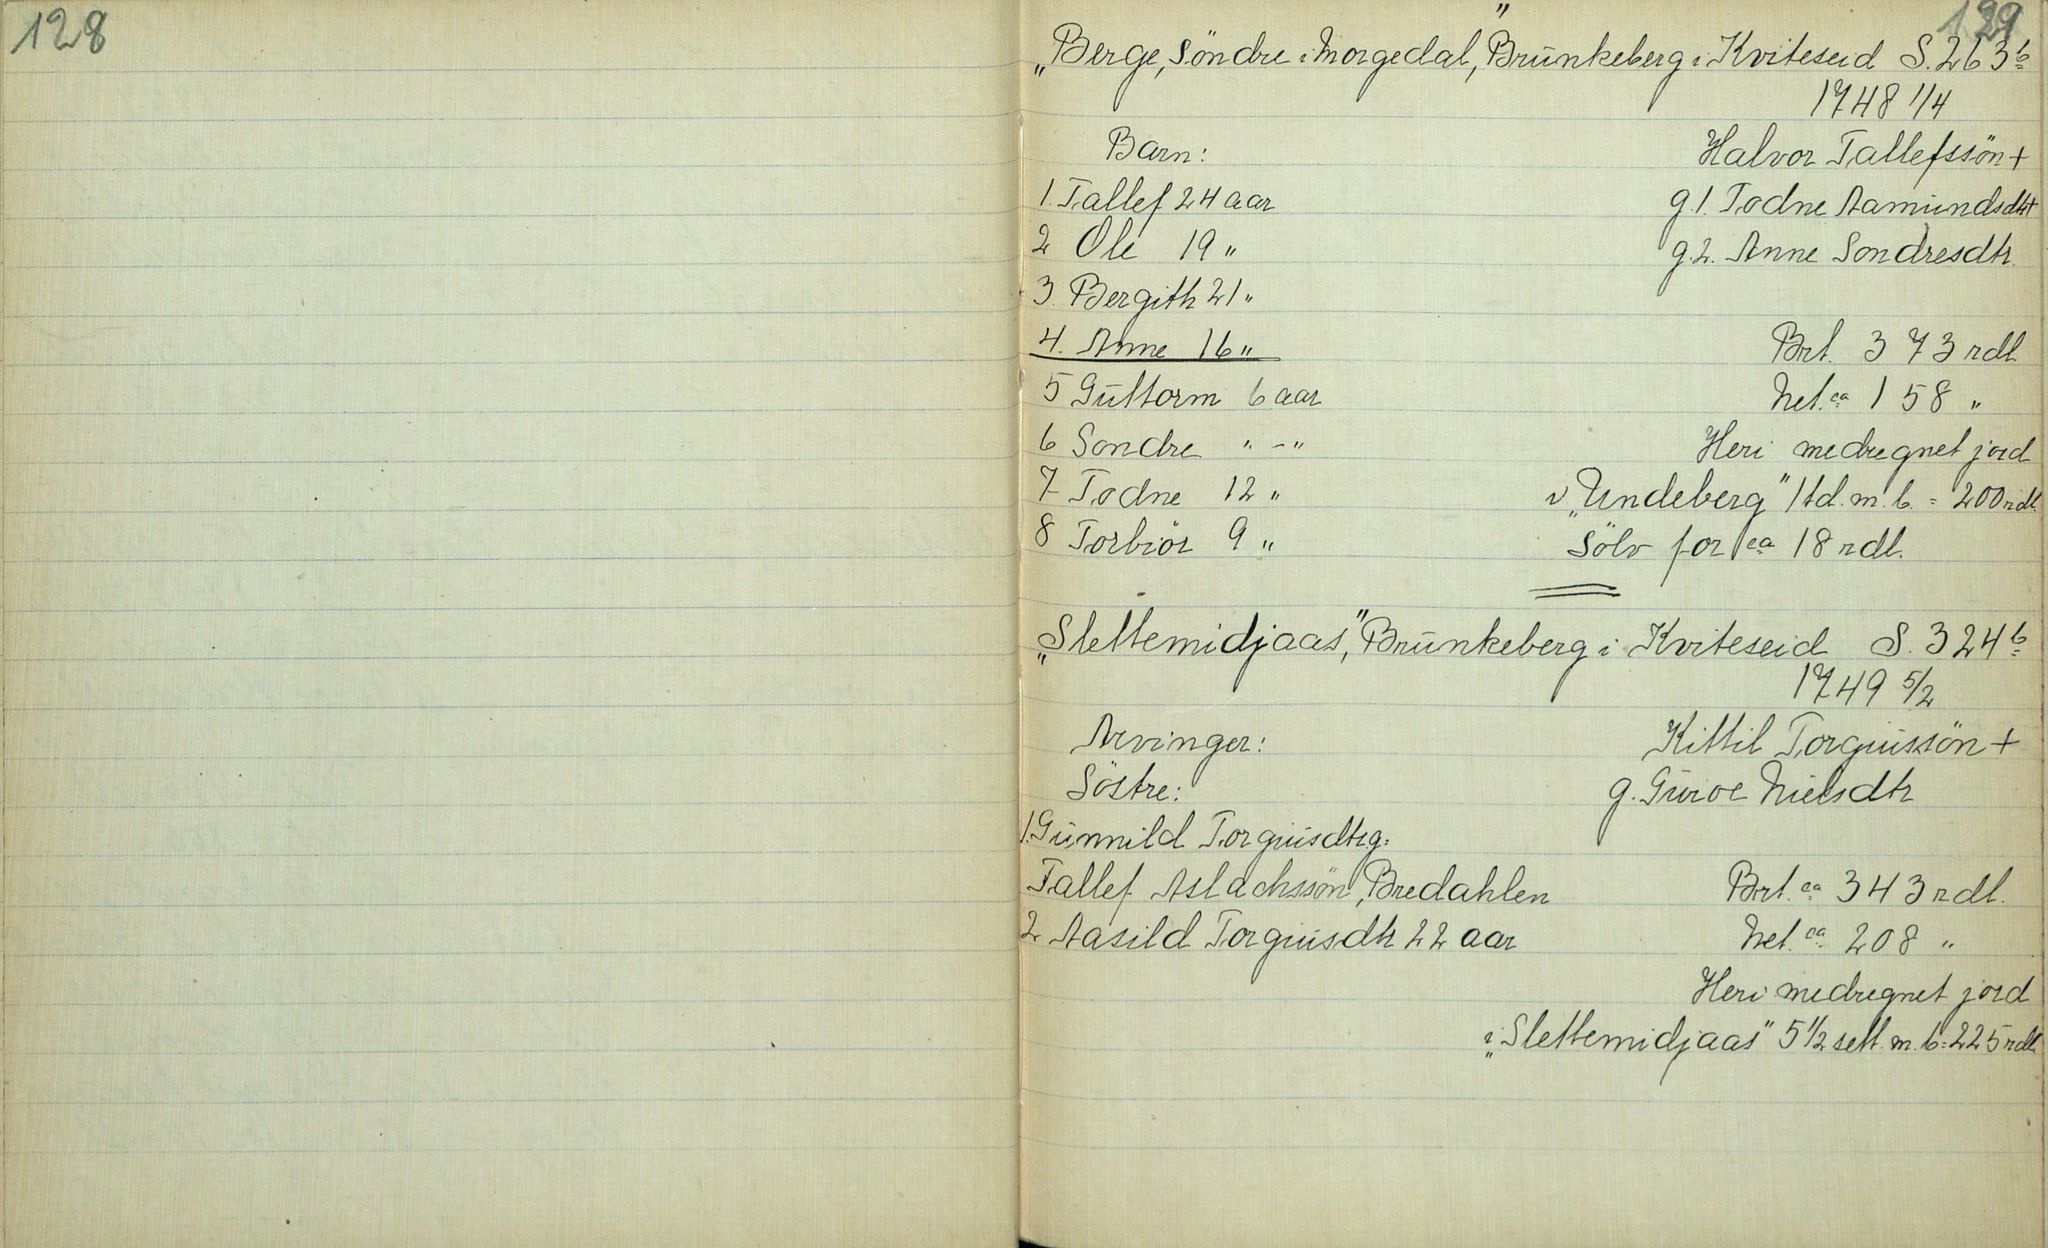 128
129
„Berge, Söndre i Morgedal," Brünkeberg i Kviteseid S. 263 b
1748 1/4
Barn: Halvor Tallefssön +
1. Tallef 24 aar g. 1. Todne Aamundsdtr +
2 Ole 19 " g. 2. Anne Sondresdtr.
3 Bergith 21 "
4. Anne 16 " Brt. 373 rdl
5 Guttorm 6 aar Net. ca 158 "
6 Sondre " - " Heri medregnet jord
7 Todne 12 " i „Undeberg" 1 td. m. b. = 200 rdl.
8 Torbiör 9 " Sölv for ca 18 rdl.
„Slettemidjaas," Brünkeberg i Kviteseid S. 324 b
1749 5/2
Arvinger: Kittil Torguissön +
Söstre: g. Guroe Nielsdtr
1. Gunnild Torguisdtr g.
Tallef Aslachssön, Bredahlen Brt. ca 343 rdl.
2 Aasild Torguisdtr 22 aar Net. ca 208 "
Heri medregnet jord
i „Slettemidjaas" 5 1/2 sett. m. b. = 225 rdl.